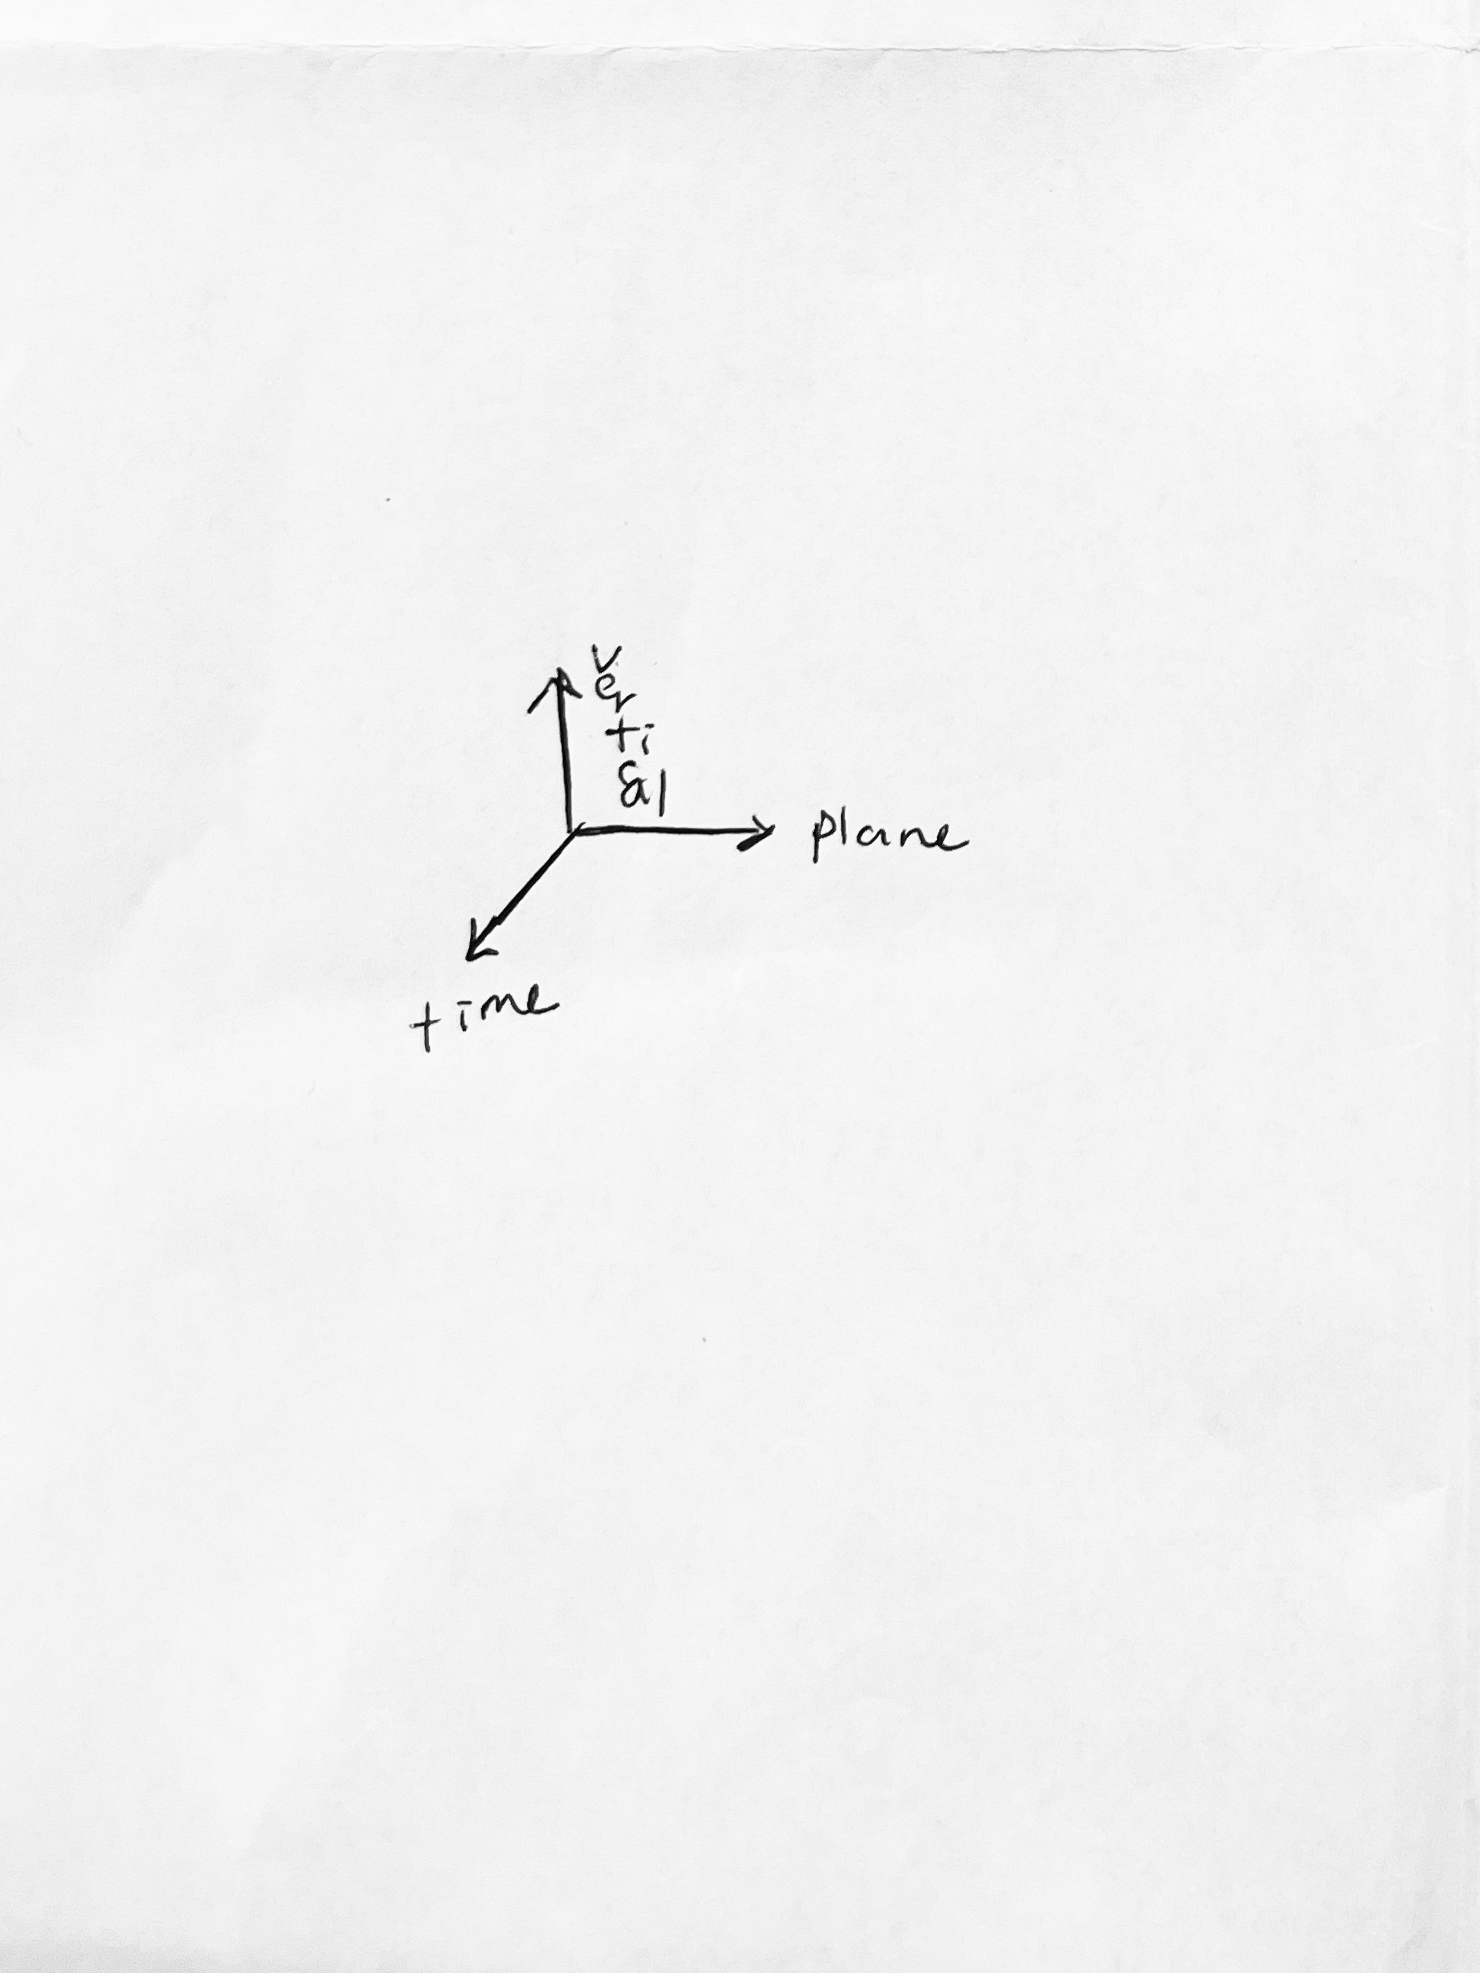 v
er
ti
al
plane
time